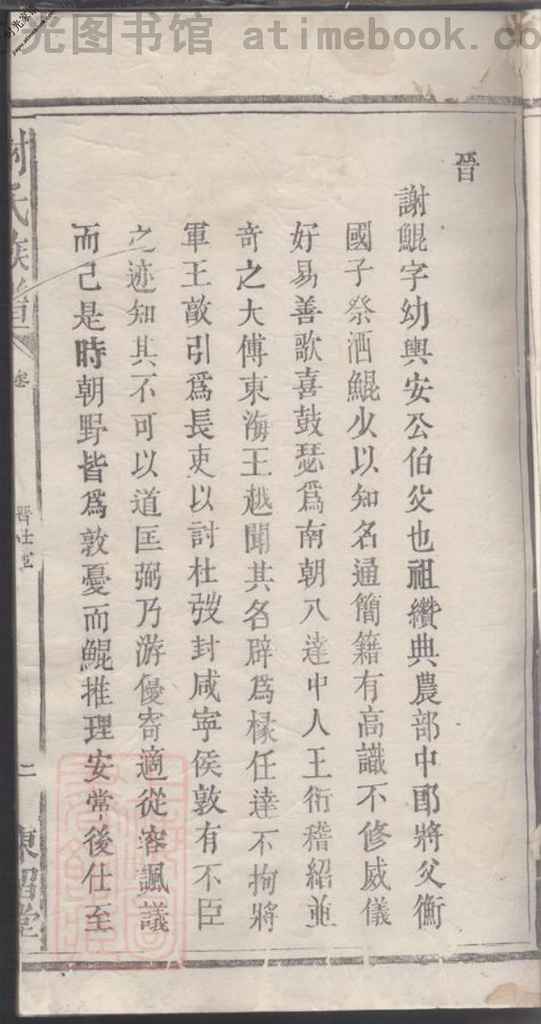 光图书馆 atimebook.co
晉
謝鯤字幼輿安公伯父也祖纘典農部中郎將父衡
國子祭酒鯤少以知名通簡籍有高識不修威儀
好易善歌喜鼓瑟爲南朝八達中人王衍嵇紹並
奇之大傅東海王越聞其名辟爲椽任達不拘將
軍王敦引爲長吏以討杜弢封咸寧侯敦有不臣
之迹知其不可以道匡弼乃游優寄適從容諷議
而已是時朝野皆爲敦憂而鯤推理安常後仕至
謝氏族譜
晉仕宦
二
東
堂